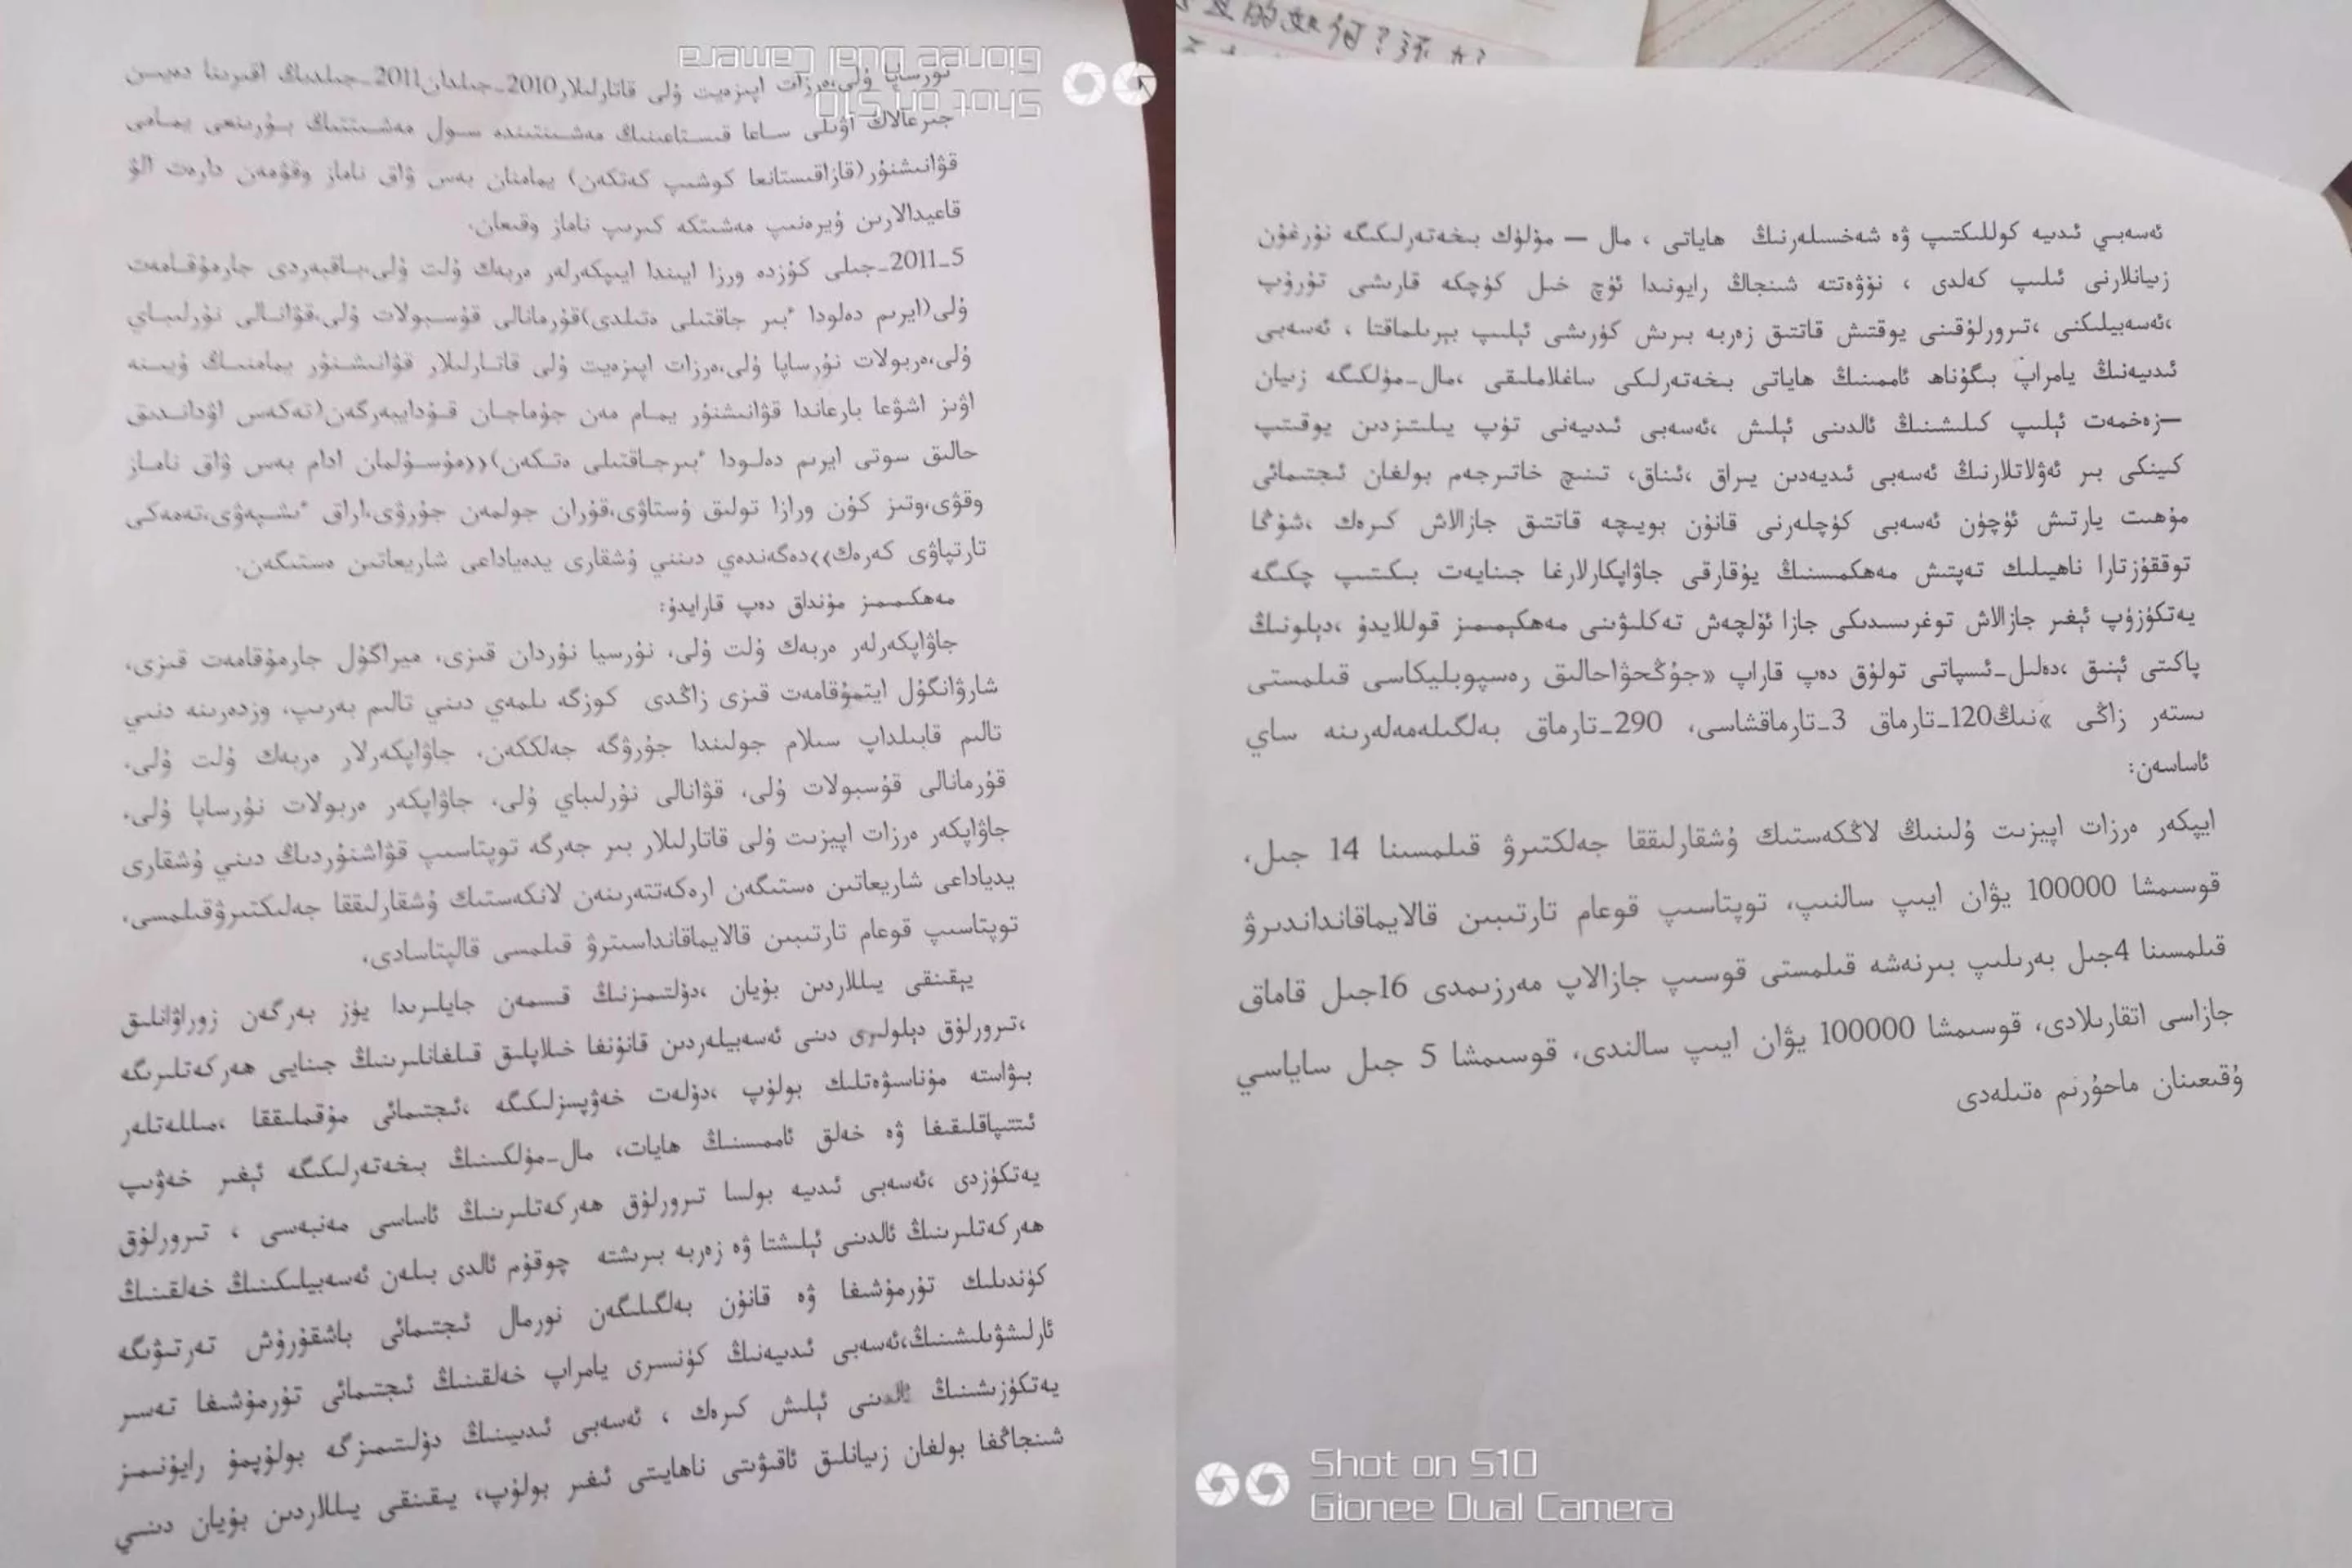 نۇرساپا ۇلى،ەرزات اپىزەيت ۇلى قاتارلىلار2010-جىلدان2011-جىلدىڭ اقىرىنا دەيىن
جىرعالاڭ اۋىلى ساعا قىستاعىنىڭ مەشىتىندە سول مەشىتتىڭ بۇرىنعى يمامى
قۋانىشنۇر(قازاقىستانعا كوشىپ كەتكەن) يمامنان بەس ۋاق ناماز وقۋمەن دارەت الۋ
قاعيدالارىن ۇيرەنىپ مەشىتكە كىرىپ ناماز وقىعان.
5-2011-جىلى كۇزدە ورزا ايىندا ايىپكەرلەر ەربەك ۇلت ۇلى،باقبەردى جارمۇقامەت
ۇلى(ايرىم دەلودا ءبىر جاقتىلى ەتىلدى)قۇرمانالى قۇسبولات ۇلى،قۋانالى نۇرلىباي
ۇلى،ەربولات نۇرساپا ۇلى،ەرزات اپىزەيت ۇلى قاتارلىلار قۋانىشنۇر يمامنىڭ ۇيىنە
اۋىز اشۋعا بارعاندا قۋانىشنۇر يمام مەن جۇماجان قۇدايبەرگەن(تەكەس اۋداندىق
حالىق سوتى ايرىم دەلودا ءبىرجاقتىلى ەتكەن)((مۇسۇلمان ادام بەس ۋاق ناماز
وقۋى،وتىز كۇن ورازا تولىق ۇستاۋى،قۇران جولمەن جۇرۋى،اراق ءىشپەۋى،تەمەكى
تارتپاۋى كەرەك))دەگەندەي دىني ۇشقارى يدەياداعى شاريعاتىن ەستىگەن.
مەھكىمىمىز مۇنداق دەپ قارايدۇ:
جاۋاپكەرلەر ەربەك ۇلت ۇلى، نۇرسيا نۇردان قىزى، ميراگۇل جارمۇقامەت قىزى،
شارۋانگۇل ايتمۇقامەت قىزى زاڭدى كوزگە ىلمەي دىني تالىم بەرىپ، وزدەرىنە دىني
تالىم قابىلداپ سىلام جولىندا جۇرۋگە جەلىككەن. جاۋاپكەرلار ەربەك ۇلت ۇلى،
قۇرمانالى قۇسبولات ۇلى، قۋانالى نۇرلىباي ۇلى، جاۋاپكەر ەربولات نۇرساپا ۇلى،
جاۋاپكەر ەرزات اپيزىت ۇلى قاتارلىلار بىر جەرگە توپتاسىپ قۋاشنۇردىڭ دىني ۇشقارى
يدياداعى شاريعاتىن ەستىگەن ارەكەتتەرىنەن لانكەستىك ۇشقارلىققا جەلىكتىرۋقىلمىسى،
توپتاسىپ قوعام تارتىبىن قالايماقانداسىترۋ قىلمىسى قالىپتاسادى.
يېقىنقى يىللاردىن بۇيان ،دۆلىتىمىزنىڭ قىسمەن جايلىرىدا يۈز بەرگەن زوراۋانلىق
،تىرورلۇق دېلولىرى دىنى ئەسەبىيلەردىن قانۇنغا خىلاپلىق قىلغانلىرىنىڭ جىنايى ھەركەتلىرىگە
بىۋاستە مۇناسىۋەتلىك بولۇپ ،دۆلەت خەۋپسىزلىكىگە ،ئىجتىمائى مۇقىملىققا ،مىللەتلەر
ئىتتىپاقلىقىغا ۋە خەلق ئاممىسىنىڭ ھايات، مال-مۈلكىنىڭ بىخەتەرلىكىگە ئېغىر خەۋىپ
يەتكۈزدى ،ئەسەبى ئىدىيە بولسا تىرورلۇق ھەركەتلىرىنىڭ ئاساسى مەنبەسى ، تىرورلۇق
ھەركەتلىرىنىڭ ئالدىنى ئېلىشتا ۋە زەربە بىرىشتە چوقۇم ئالدى بىلەن ئەسەبىيلىكىنىڭ خەلقىنىڭ
كۈندىلىك تۇرمۇشىغا ۋە قانۇن بەلگىلىگەن نورمال ئىجتىمائى باشقۇرۇش تەرتىۋىگە
ئارلىشىۋىلىشىنىڭ،ئەسەبى ئىدىيەنىڭ كۈنسىرى يامراپ خەلقىنىڭ ئىجتىمائى تۇرمۇشىغا تەسىر
يەتكۈزىشىنىڭ ئالدىنى ئېلىش كىرەك ، ئەسەبى ئىدىيىنىڭ دۆلىتىمىزگە بولۇپمۇ رايۇنىمىز
شىنجاڭغا بولغان زىيانلىق ئاقىۋىتى ناھايىتى ئىغىر بولۇپ، يىقىنقى يىللاردىن بۇيان دىنىي
ئەسەبىي ئىدىيە كوللىكتىپ ۋە شەخىسلەرنىڭ ھاياتى ، مال — مۈلۈك بىخەتەرلىكىگە نۇرغۇن
زىيانلارنى ئىلىپ كەلدى ، نۆۋەتتە شىنجاڭ رايونىدا ئۈچ خىل كۈچكە قارىشى تۇرۇپ
،ئەسەبىيلىكنى ،تىرورلۇقنى يوقىتىش قاتتىق زەربە بىرىش كۈرىشى ئېلىپ بېرىلماقتا ، ئەسەبى
ئىدىيەنىڭ يامراپ بىگۇناھ ئاممىنىڭ ھاياتى بىخەتەرلىكى ساغلاملىقى ،مال-مۈلكىگە زىيان
—زەخمەت ئېلىپ كىلىشىنىڭ ئالدىنى ئېلىش ،ئەسەبى ئىدىيەنى تۈپ يىلتىزدىن يوقىتىپ
كىينكى بىر ئەۋلاتلارنىڭ ئەسەبى ئىدىيەدىن يىراق ،ئىناق، تىنىچ خاتىرجەم بولغان ئىجتىمائى
مۇھىت يارتىش ئۈچۈن ئەسەبى كۈچلەرنى قانۇن بويىچە قاتتىق جازالاش كىرەك ،شۇڭا
توققۇزتارا ناھىيىلىك تەپتىش مەھكىمىسىنىڭ يۇقارقى جاۋاپكارلارغا جىنايەت بىكىتىپ چىكىگە
يەتكۈزۈپ ئېغىر جازالاش توغرىسىدىكى جازا ئۆلچەش تەكلىۋىنى مەھكېمىمىز قوللايدۇ ،دېلونىڭ
پاكىتى ئېنىق ،دەلىل-ئىسپاتى تولۇق دەپ قاراپ «جۇڭحۋاحالىق رەسپوبلىيكاسى قىلمىستى
ىستەر زاڭى »نىڭ120-تارماق 3-تارماقشاسى، 290-تارماق بەلگىلەمەلەرىنە ساي
ئاساسەن:
ايىپكەر ەرزات اپيزىت ۇلىنىڭ لاڭكەستىك ۇشقارلىققا جەلىكتىرۋ قىلمىسىنا 14 جىل،
قوسىمشا 100000 يۋان ايىپ سالىنىپ، توپتاسىپ قوعام تارتىبىن قالايماقانداندىرۋ
قىلمىسىنا 4جىل بەرىلىپ بىرنەشە قىلمىستى قوسىپ جازالاپ مەرزىمدى 16جىل قاماق
جازاسى اتقارىلادى، قوسىمشا 100000 يۋان ايىپ سالىندى، قوسىمشا 5 جىل ساياسي
ۇقىعىنان ماحۇرىم ەتىلەدى
Shot on S10
Gionee Dual Camera